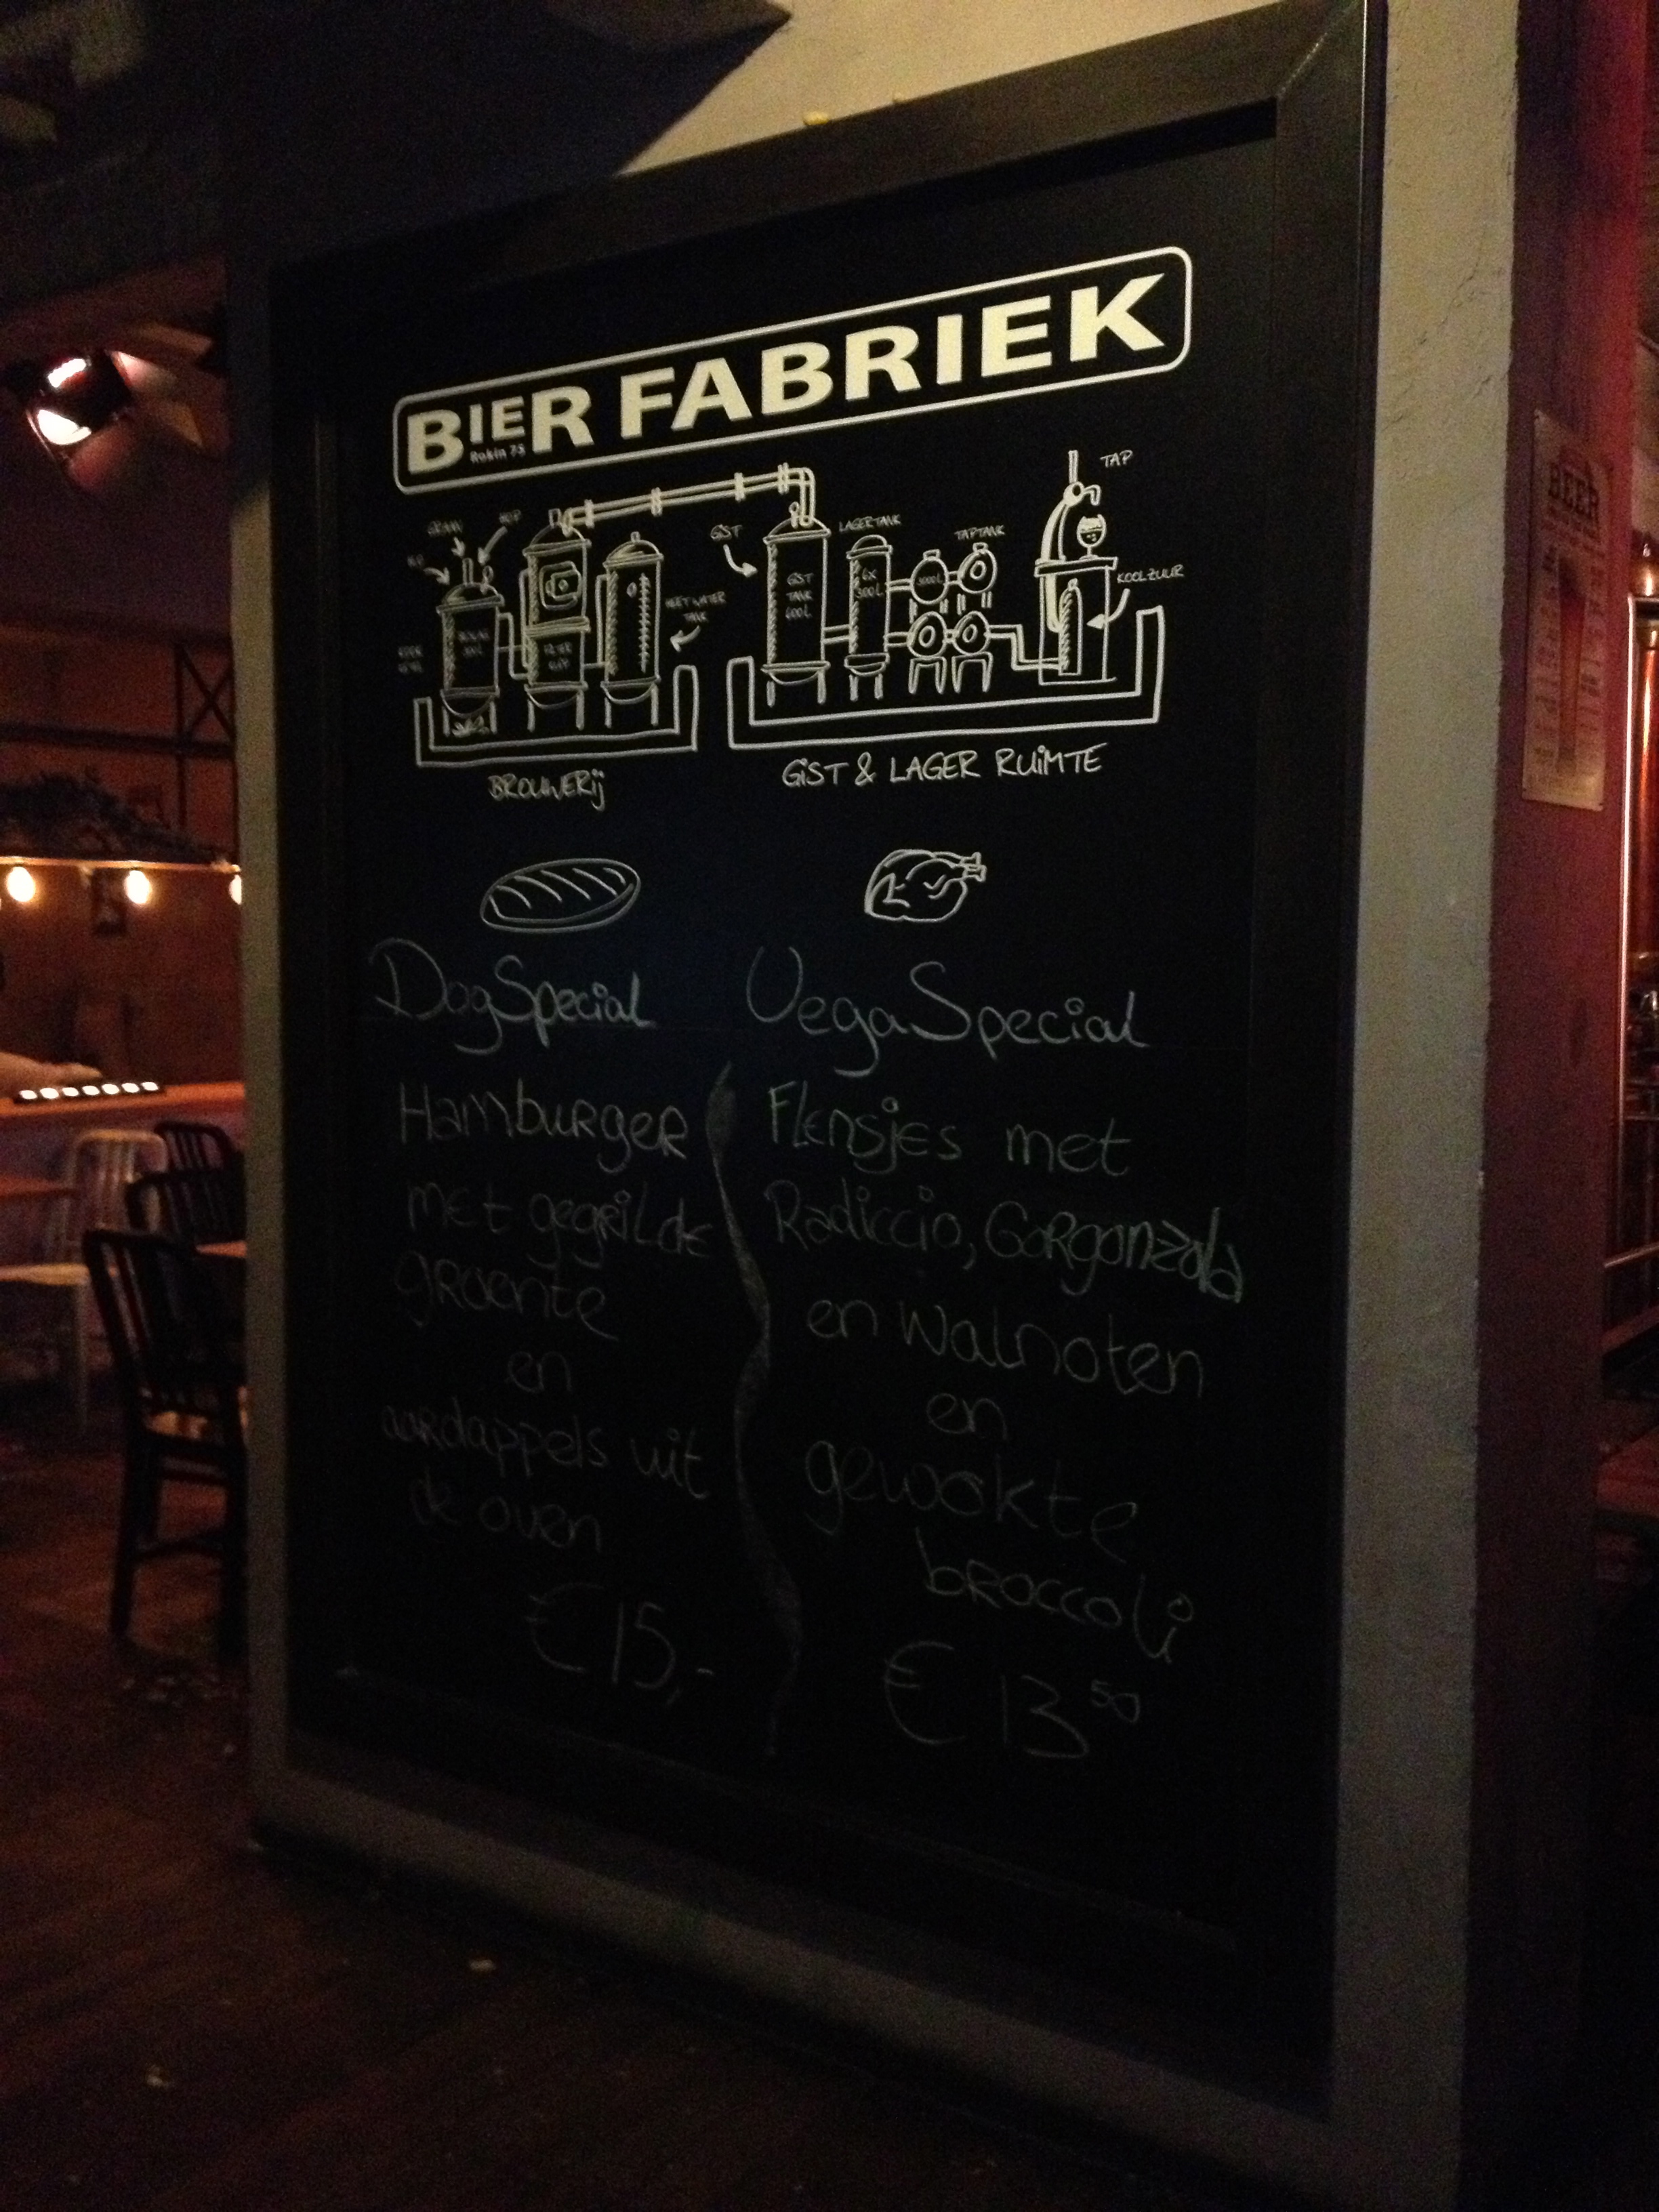 BIER FABRIEK
Rokin 75
TAP
GRAAN
HOP
GIST
LAGERTANK
TAPTANK
GIST
TANK
600L
6X
3000L
KOOLZUUR
HEET WATER
TANK
BROUWERIJ
GIST & LAGER RUIMTE
DagSpecial
Hamburger
met gegrilde
groente
en
aardappels uit
de oven
€15,-
VegaSpecial
Flensjes met
Radiccio, Gorgonzola
en walnoten
en
gewokte
broccoli
€ 13 50
BEER